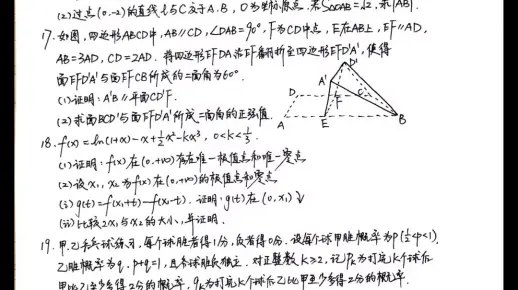 (2)过点(0,-2)的直线l与C交于A.B, O为坐标原点. 若S△OAB=√2, 求|AB|.
17. 如图, 四边形ABCD中, AB∥CD, ∠DAB=90°, F为CD中点, E在AB上, EF∥AD,
AB=3AD, CD=2AD. 将四边形EFDA沿EF翻折至四边形EFD'A', 使得
面EFD'A'与面EFCB所成的二面角为60°.
(1)证明: A'B∥平面CD'F.
(2)求面BCD'与面EFD'A'所成二面角的正弦值.
D'
A'
D
F
C
A
E
B
18. f(x)=ln(1+x)-x+½x²-kx³, 0<k<⅓.
(1)证明: f(x)在(0,+∞)存在唯一极值点和唯一零点
(2)设x₁, x₂为f(x)在(0,+∞)的极值点和零点
(i)g(t)=f(x₁+t)-f(x₁-t). 证明: g(t)在(0,x₁)↓
(ii)比较2x₁与x₂的大小, 并证明.
19. 甲.乙乒乓球练习, 每个球胜者得1分, 负者得0分. 设每个球甲胜概率为p(½<p<1),
乙胜概率为q. p+q=1, 且各球胜负独立. 对正整数k≥2, 记pₖ为打完k个球后
甲比乙至少多得2分的概率, qₖ为打完k个球后乙比甲至少多得2分的概率.